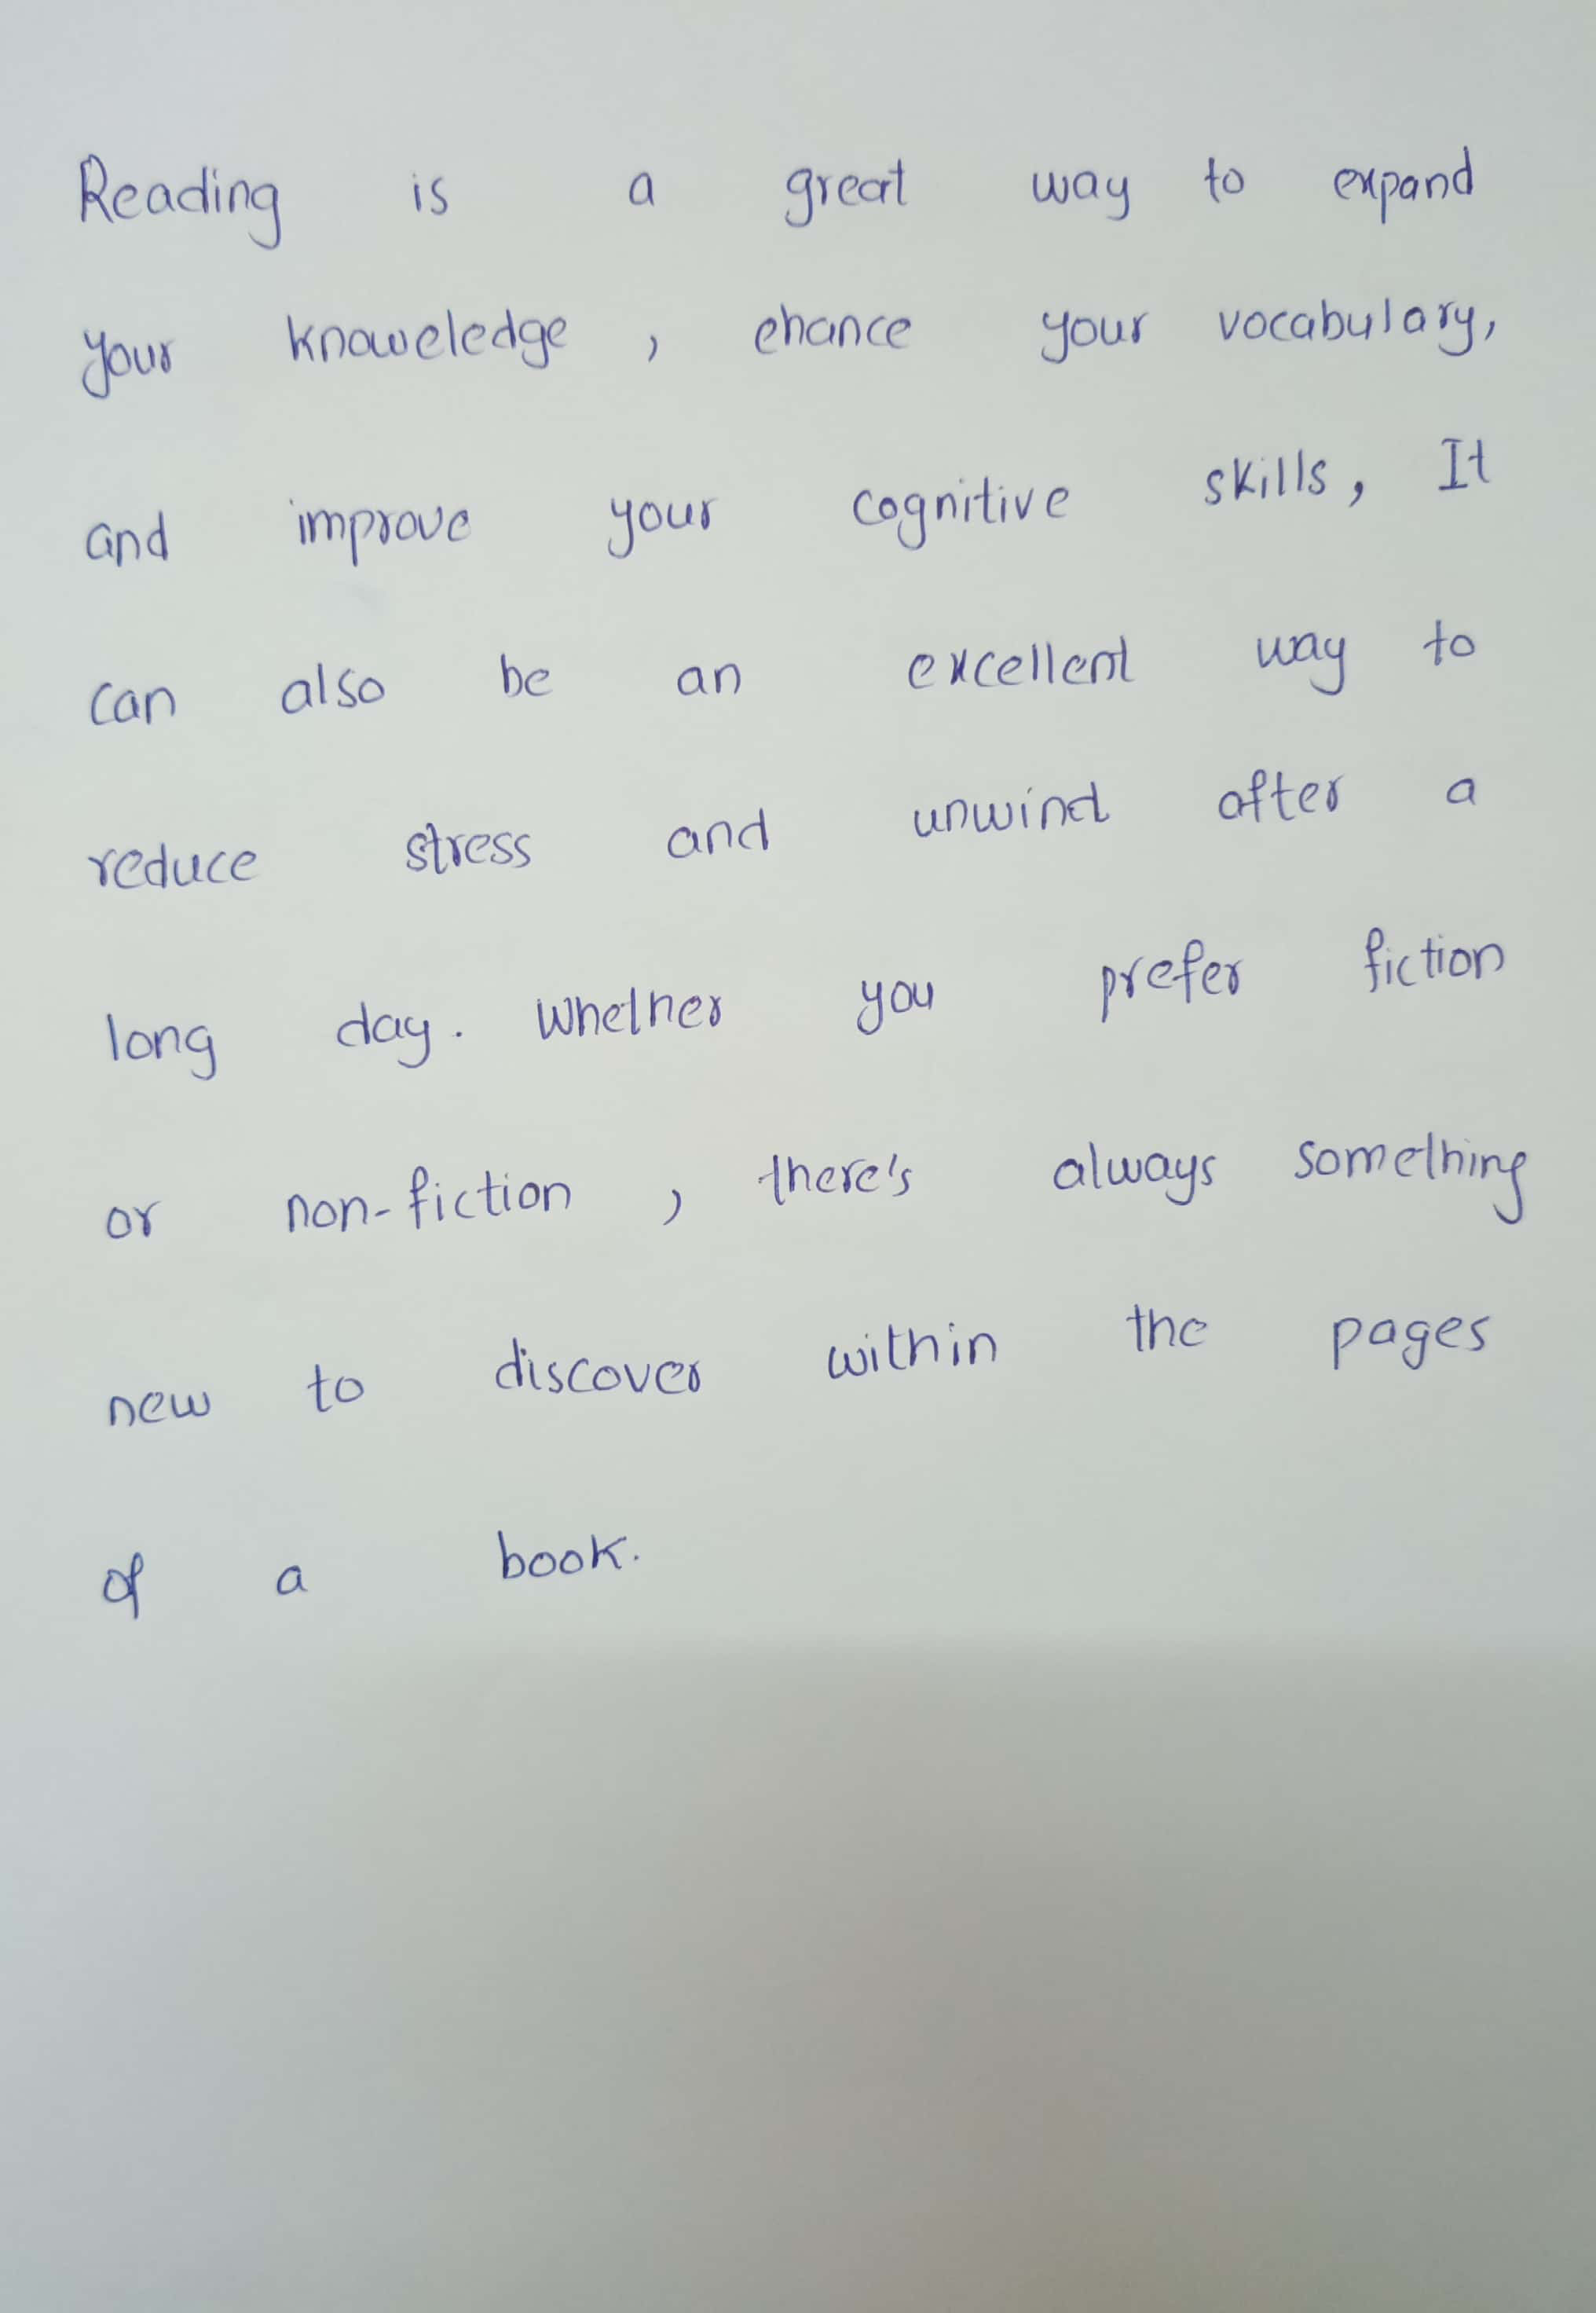 Reading is a great way to expand
your knoweledge , ehance your vocabulary,
and improve your cognitive skills, It
can also be an excellent way to
reduce stress and unwind after a
long day. Whether you prefer fiction
or non-fiction , there's always something
new to discover within the pages
of a book.